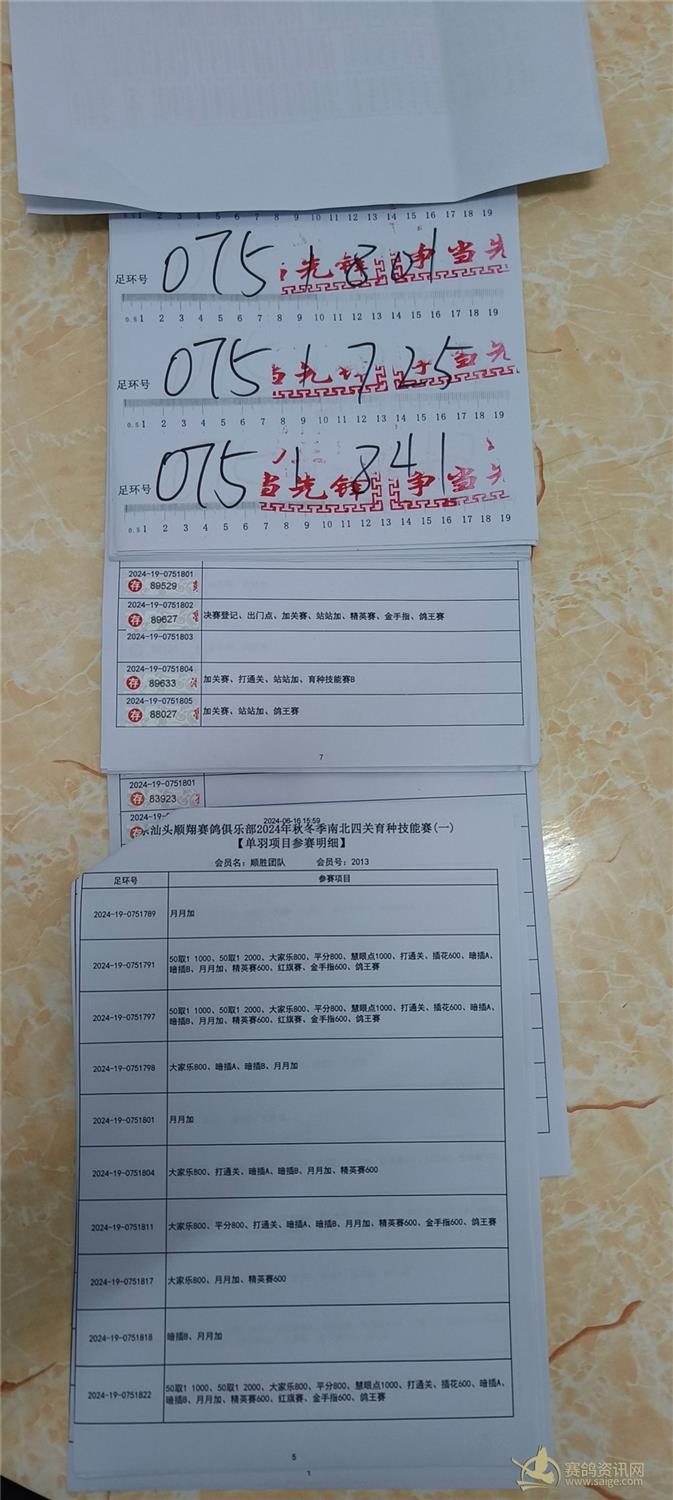 足环号 0751801
0.5 1 2 3 4 5 6 7 8 9 10 11 12 13 14 15 16 17 18 19
足环号 0751725
0.5 1 2 3 4 5 6 7 8 9 10 11 12 13 14 15 16 17 18 19
足环号 0751841
当先锋 争当先
0.5 1 2 3 4 5 6 7 8 9 10 11 12 13 14 15 16 17 18 19
2024-19-0751801
存 89529
2024-19-0751802
存 89627 决赛登记、出门点、加关赛、站站加、精英赛、金手指、鸽王赛
2024-19-0751803
2024-19-0751804
存 89633 加关赛、打通关、站站加、育种技能赛B
2024-19-0751805
存 88027 加关赛、站站加、鸽王赛
7
2024-19-0751801
存 83923
2024-06-16 15:59
汕头顺翔赛鸽俱乐部2024年秋冬季南北四关育种技能赛(一)
【单羽项目参赛明细】
会员名：顺胜团队 会员号：2013
足环号 参赛项目
2024-19-0751789 月月加
2024-19-0751791 50取1 1000、50取1 2000、大家乐800、平分800、慧眼点1000、打通关、插花600、暗插A、
暗插B、月月加、精英赛600、红旗赛、金手指600、鸽王赛
2024-19-0751797 50取1 1000、50取1 2000、大家乐800、平分800、慧眼点1000、打通关、插花600、暗插A、
暗插B、月月加、精英赛600、红旗赛、金手指600、鸽王赛
2024-19-0751798 大家乐800、暗插A、暗插B、月月加
2024-19-0751801 月月加
2024-19-0751804 大家乐800、打通关、暗插A、暗插B、月月加、精英赛600
2024-19-0751811 大家乐800、平分800、打通关、暗插A、暗插B、月月加、精英赛600、金手指600、鸽王赛
2024-19-0751817 大家乐800、月月加、精英赛600
2024-19-0751818 暗插B、月月加
2024-19-0751822 50取1 1000、50取1 2000、大家乐800、平分800、慧眼点1000、打通关、插花600、暗插A、
暗插B、月月加、精英赛600、红旗赛、金手指600、鸽王赛
5
1
赛鸽资讯网
www.saige.com